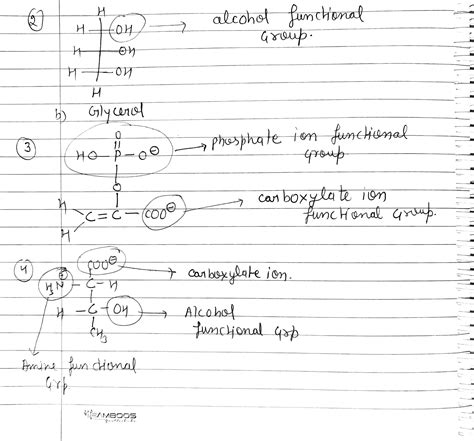 ② H
H OH → alcohol functional
Group.
H OH
H OH
H
b) Glycerol
③ O
HO - P - O⊖ → phosphate ion functional
group
O
H C = C - COO⊖ → carboxylate ion
functional Group.
H
④ COO⊖ → carboxylate ion.
H3N⊕ - C - H
H - C - OH → Alcohol
functional grp
CH3
Amine functional
Grp